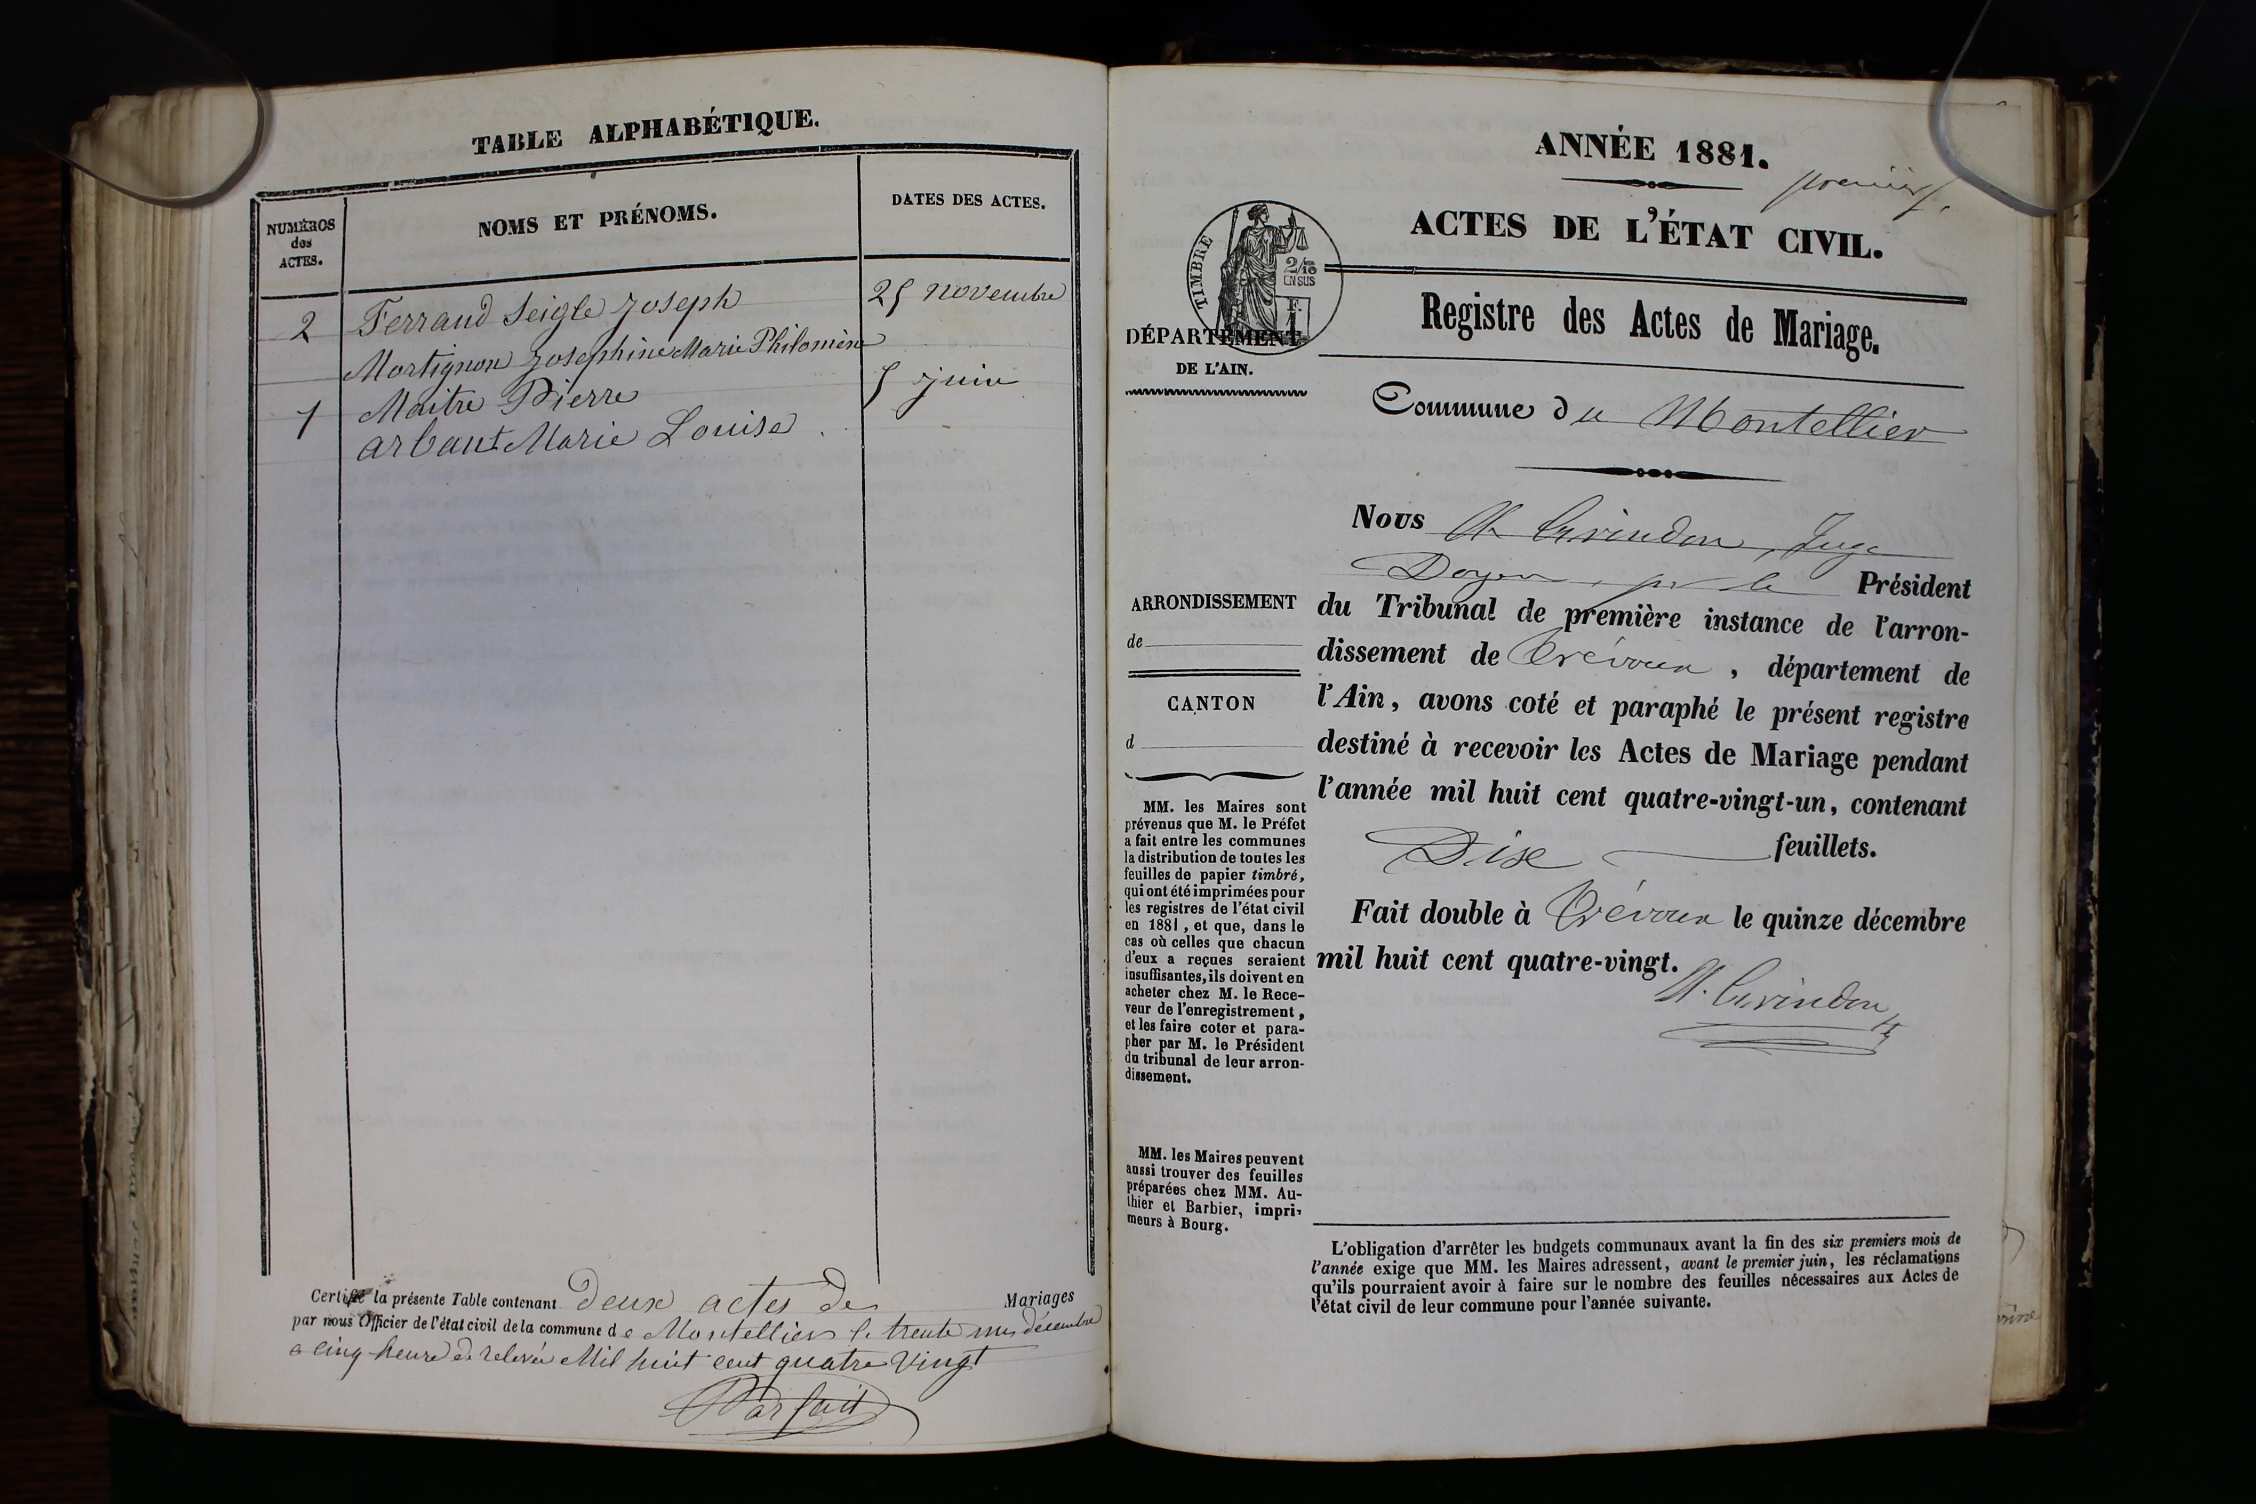 TABLE ALPHABÉTIQUE.
NUMÉROS
des
ACTES.
NOMS ET PRÉNOMS.
DATES DES ACTES.
2 Ferraud Seigle Joseph 25 novembre
Mortignon Josephine Marie Philomène
1 Maitre Pierre 5 juin
arbant Marie Louise
Certifié la présente Table contenant deux actes de Mariages
par nous Officier de l'état civil de la commune de Montellier le trente un décembre
a cinq heure de relevée Mil huit cent quatre vingt
Parfait
ANNÉE 1881.
premier
ACTES DE L'ÉTAT CIVIL.
TIMBRE
2/10
EN SUS
F.
1
DÉPARTEMENT
DE L'AIN.
Registre des Actes de Mariage.
Commune du Montellier
ARRONDISSEMENT
de
CANTON
d
MM. les Maires sont
prévenus que M. le Préfet
a fait entre les communes
la distribution de toutes les
feuilles de papier timbré,
qui ont été imprimées pour
les registres de l'état civil
en 1881, et que, dans le
cas où celles que chacun
d'eux a reçues seraient
insuffisantes, ils doivent en
acheter chez M. le Rece-
veur de l'enregistrement,
et les faire coter et para-
pher par M. le Président
du tribunal de leur arron-
dissement.
MM. les Maires peuvent
aussi trouver des feuilles
préparées chez MM. Au-
thier et Barbier, impri-
meurs à Bourg.
Nous Grindon, Juge
Doyen, pr le Président
du Tribunal de première instance de l'arron-
dissement de Trévoux, département de
l'Ain, avons coté et paraphé le présent registre
destiné à recevoir les Actes de Mariage pendant
l'année mil huit cent quatre-vingt-un, contenant
Dix feuillets.
Fait double à Trévoux le quinze décembre
mil huit cent quatre-vingt.
Grindon
L'obligation d'arrêter les budgets communaux avant la fin des six premiers mois de
l'année exige que MM. les Maires adressent, avant le premier juin, les réclamations
qu'ils pourraient avoir à faire sur le nombre des feuilles nécessaires aux Actes de
l'état civil de leur commune pour l'année suivante.